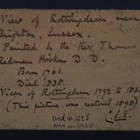 View of Rottingdean, near
Brighton, Sussex.
Painted by the Rev. Thomas
Redman Hooker D.D.
Born 1762.
Died 1838.
Vicar of Rottingdean 1792 to 1838
(This picture was restored 1898)